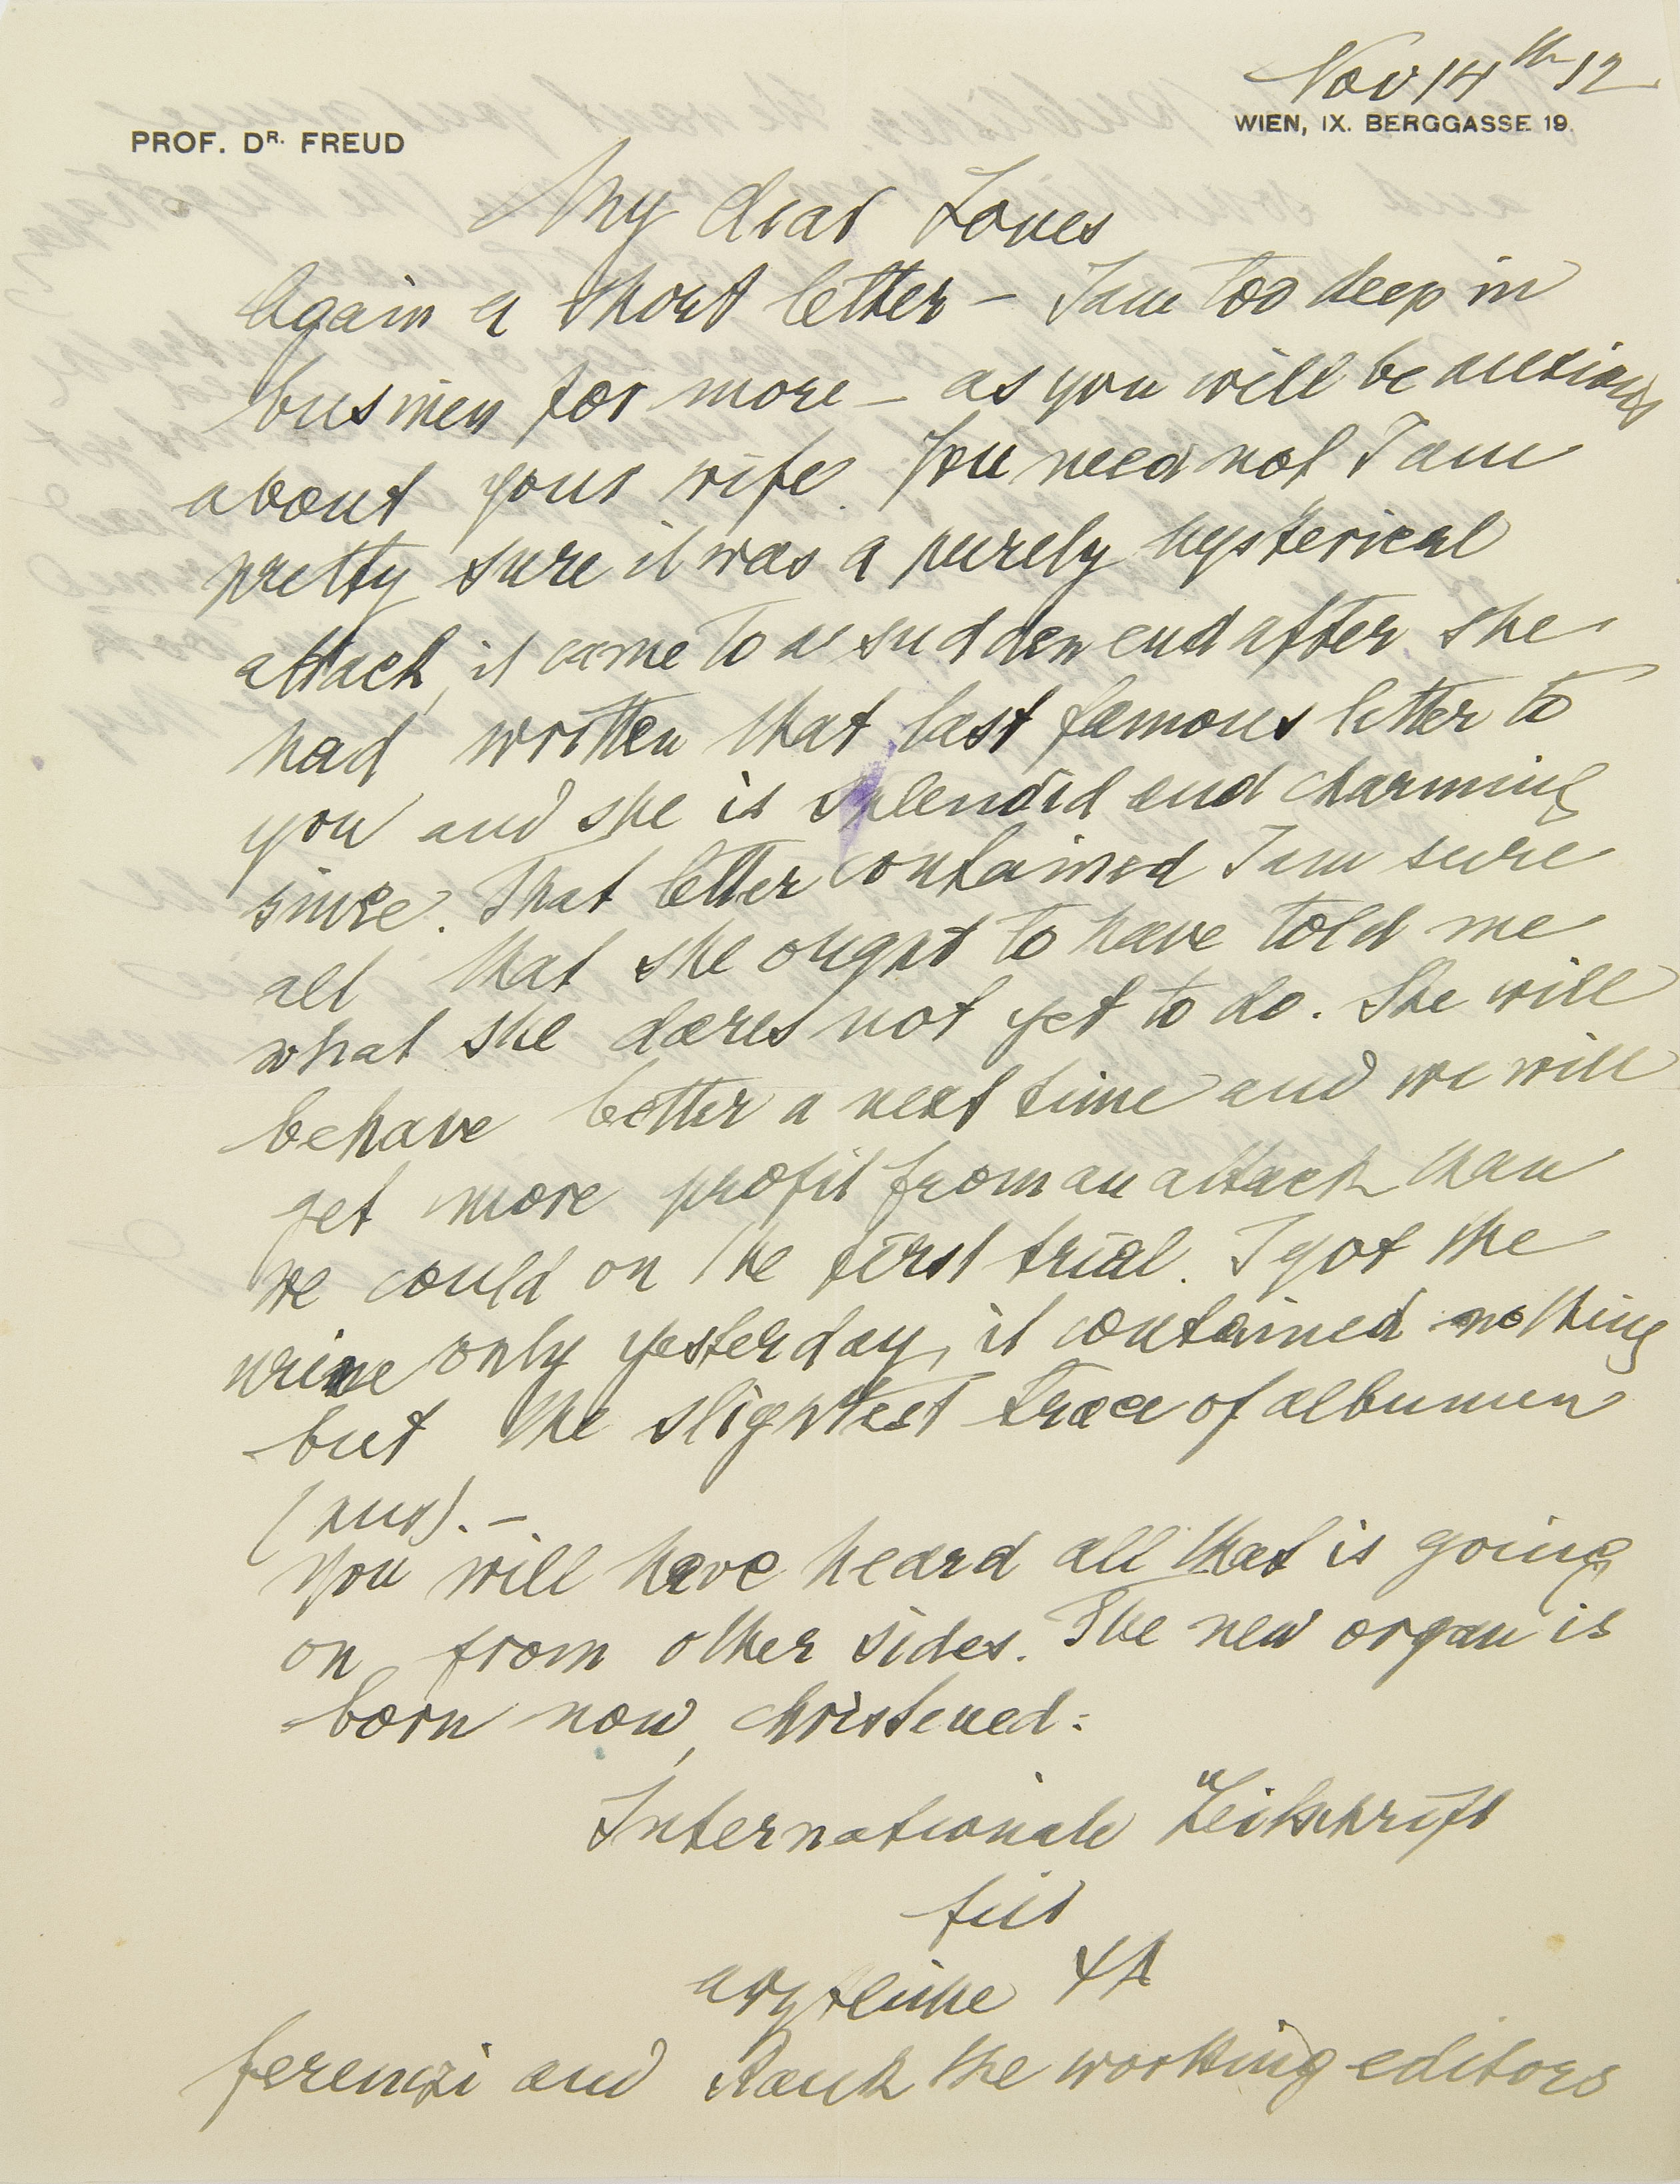 Nov 14th 12
PROF. DR. FREUD
WIEN, IX. BERGGASSE 19.
My dear Jones
Again a short letter – I am too deep in
business for more – as you will be anxious
about your wife. You need not I am
pretty sure it was a purely hysterical
attack, it came to a sudden end after she
had written that last famous letter to
you and she is splendid and charming
since. That letter contained I am sure
all that she ought to have told me
what she dares not yet to do. She will
behave better a next time and we will
get more profit from an attack than
we could on the first trial. I got the
urine only yesterday, it contained nothing
but the slightest trace of albumen
(pus). –
You will have heard all that is going
on from other sides. The new organ is
born now, christened:
Internationale Zeitschrift
für
ärztliche ΨA
Ferenczi and Rank the working editors